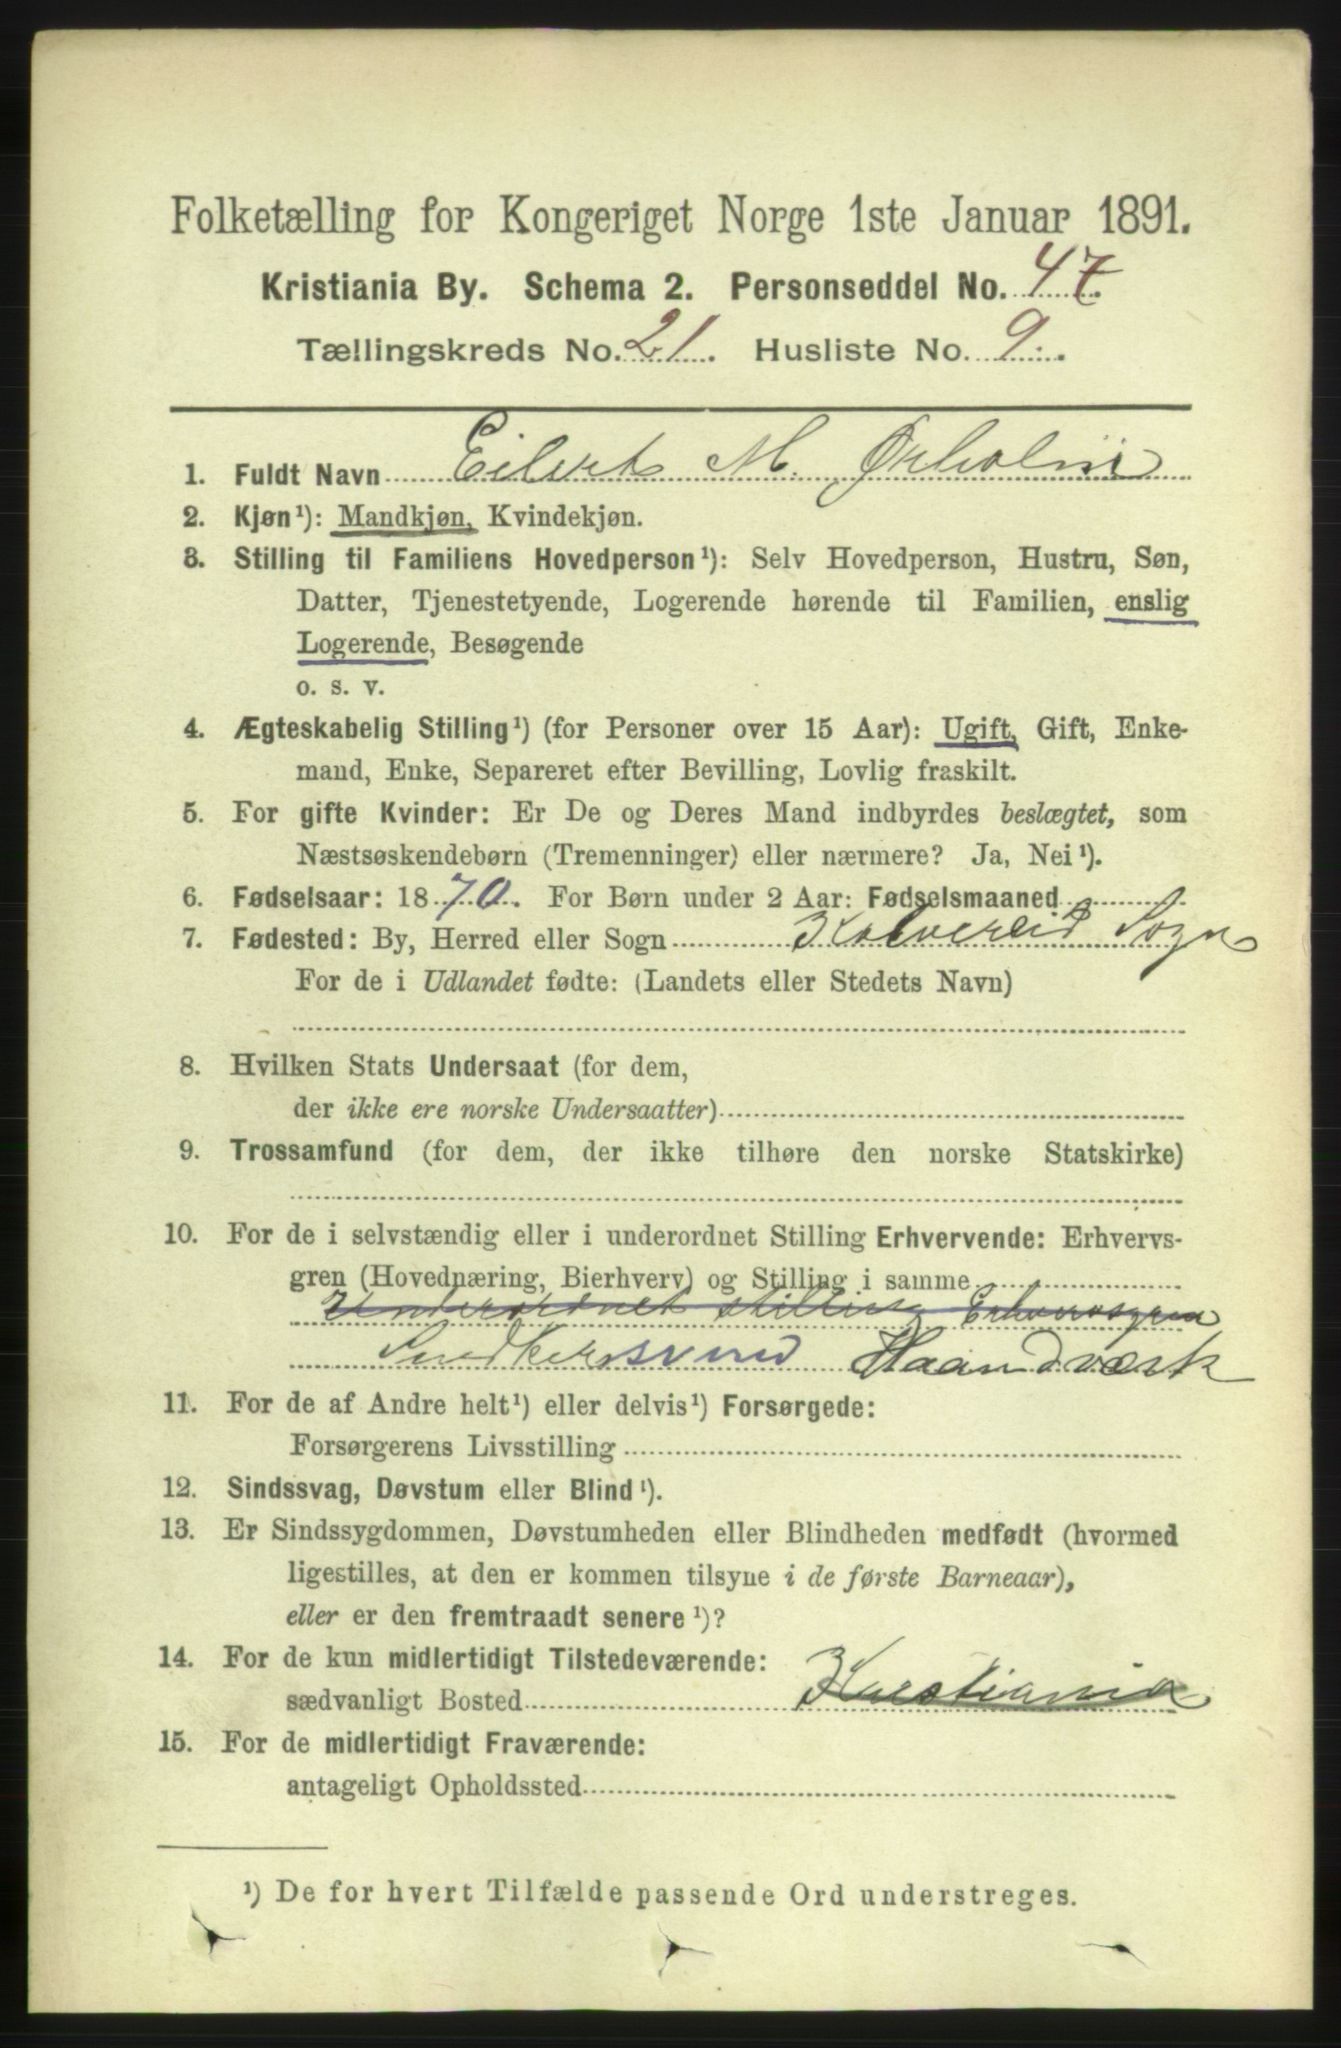 Folketælling for Kongeriget Norge 1ste Januar 1891.
Kristiania By. Schema 2. Personseddel No. 47.
Tællingskreds No. 21. Husliste No. 9.
1. Fuldt Navn Eilert M. Ørholm
2. Kjøn¹): Mandkjøn, Kvindekjøn.
3. Stilling til Familiens Hovedperson¹): Selv Hovedperson, Hustru, Søn,
Datter, Tjenestetyende, Logerende hørende til Familien, enslig
Logerende, Besøgende
o. s. v.
4. Ægteskabelig Stilling¹) (for Personer over 15 Aar): Ugift, Gift, Enke-
mand, Enke, Separeret efter Bevilling, Lovlig fraskilt.
5. For gifte Kvinder: Er De og Deres Mand indbyrdes beslægtet, som
Næstsøskendebørn (Tremenninger) eller nærmere? Ja, Nei¹).
6. Fødselsaar: 1870. For Børn under 2 Aar: Fødselsmaaned
7. Fødested: By, Herred eller Sogn Kolvereid Sogn
For de i Udlandet fødte: (Landets eller Stedets Navn)
8. Hvilken Stats Undersaat (for dem,
der ikke ere norske Undersaatter)
9. Trossamfund (for dem, der ikke tilhøre den norske Statskirke)
10. For de i selvstændig eller i underordnet Stilling Erhvervende: Erhvervs-
gren (Hovednæring, Bierhverv) og Stilling i samme
Underordnet stilling Erhvervsgren
Snedkersvend Haandværk
11. For de af Andre helt¹) eller delvis¹) Forsørgede:
Forsørgerens Livsstilling
12. Sindssvag, Døvstum eller Blind¹).
13. Er Sindssygdommen, Døvstumheden eller Blindheden medfødt (hvormed
ligestilles, at den er kommen tilsyne i de første Barneaar),
eller er den fremtraadt senere¹)?
14. For de kun midlertidigt Tilstedeværende:
sædvanligt Bosted Kristiania
15. For de midlertidigt Fraværende:
antageligt Opholdssted
¹) De for hvert Tilfælde passende Ord understreges.